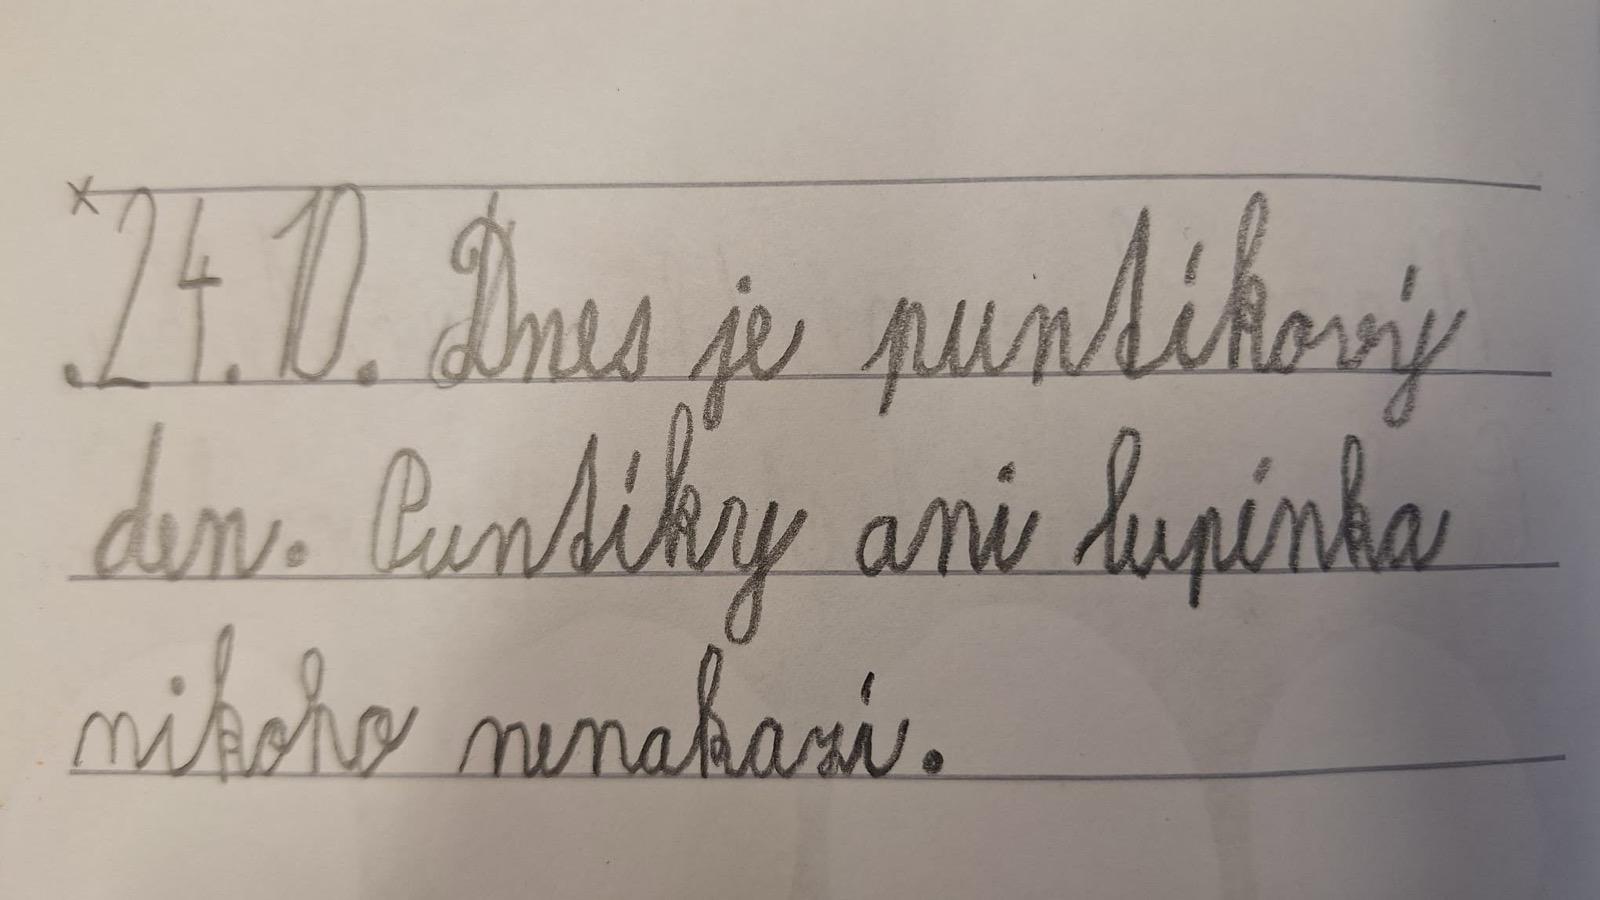 x 24. 10. Dnes je puntíkový
den. Puntíky ani lupínka
nikoho nenakazí.